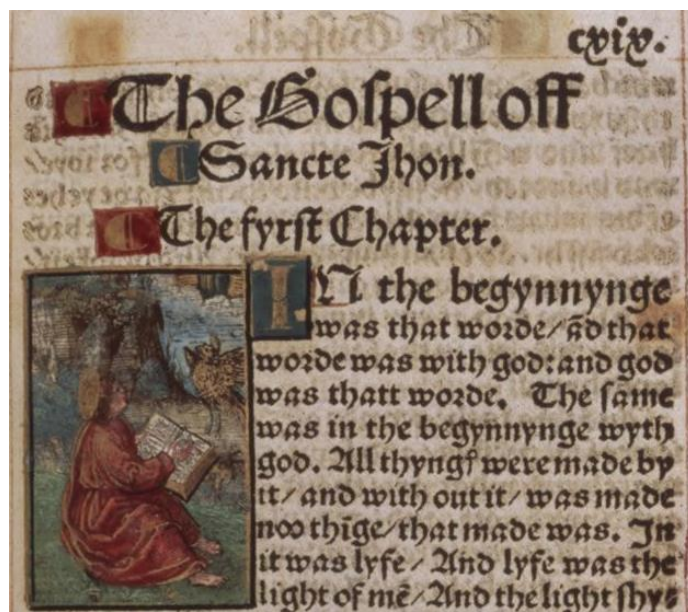 cxix.
The Gospell off
Sancte Jhon.
The fyrst Chapter.
IN the begynnynge
was that worde/ ād that
worde was with god: and god
was thatt worde. The same
was in the begynnynge wyth
god. All thyngꝭ were made by
it/ and with out it/ was made
noo thīge/ that made was. In
it was lyfe/ And lyfe was the
light of mē/ And the light shys